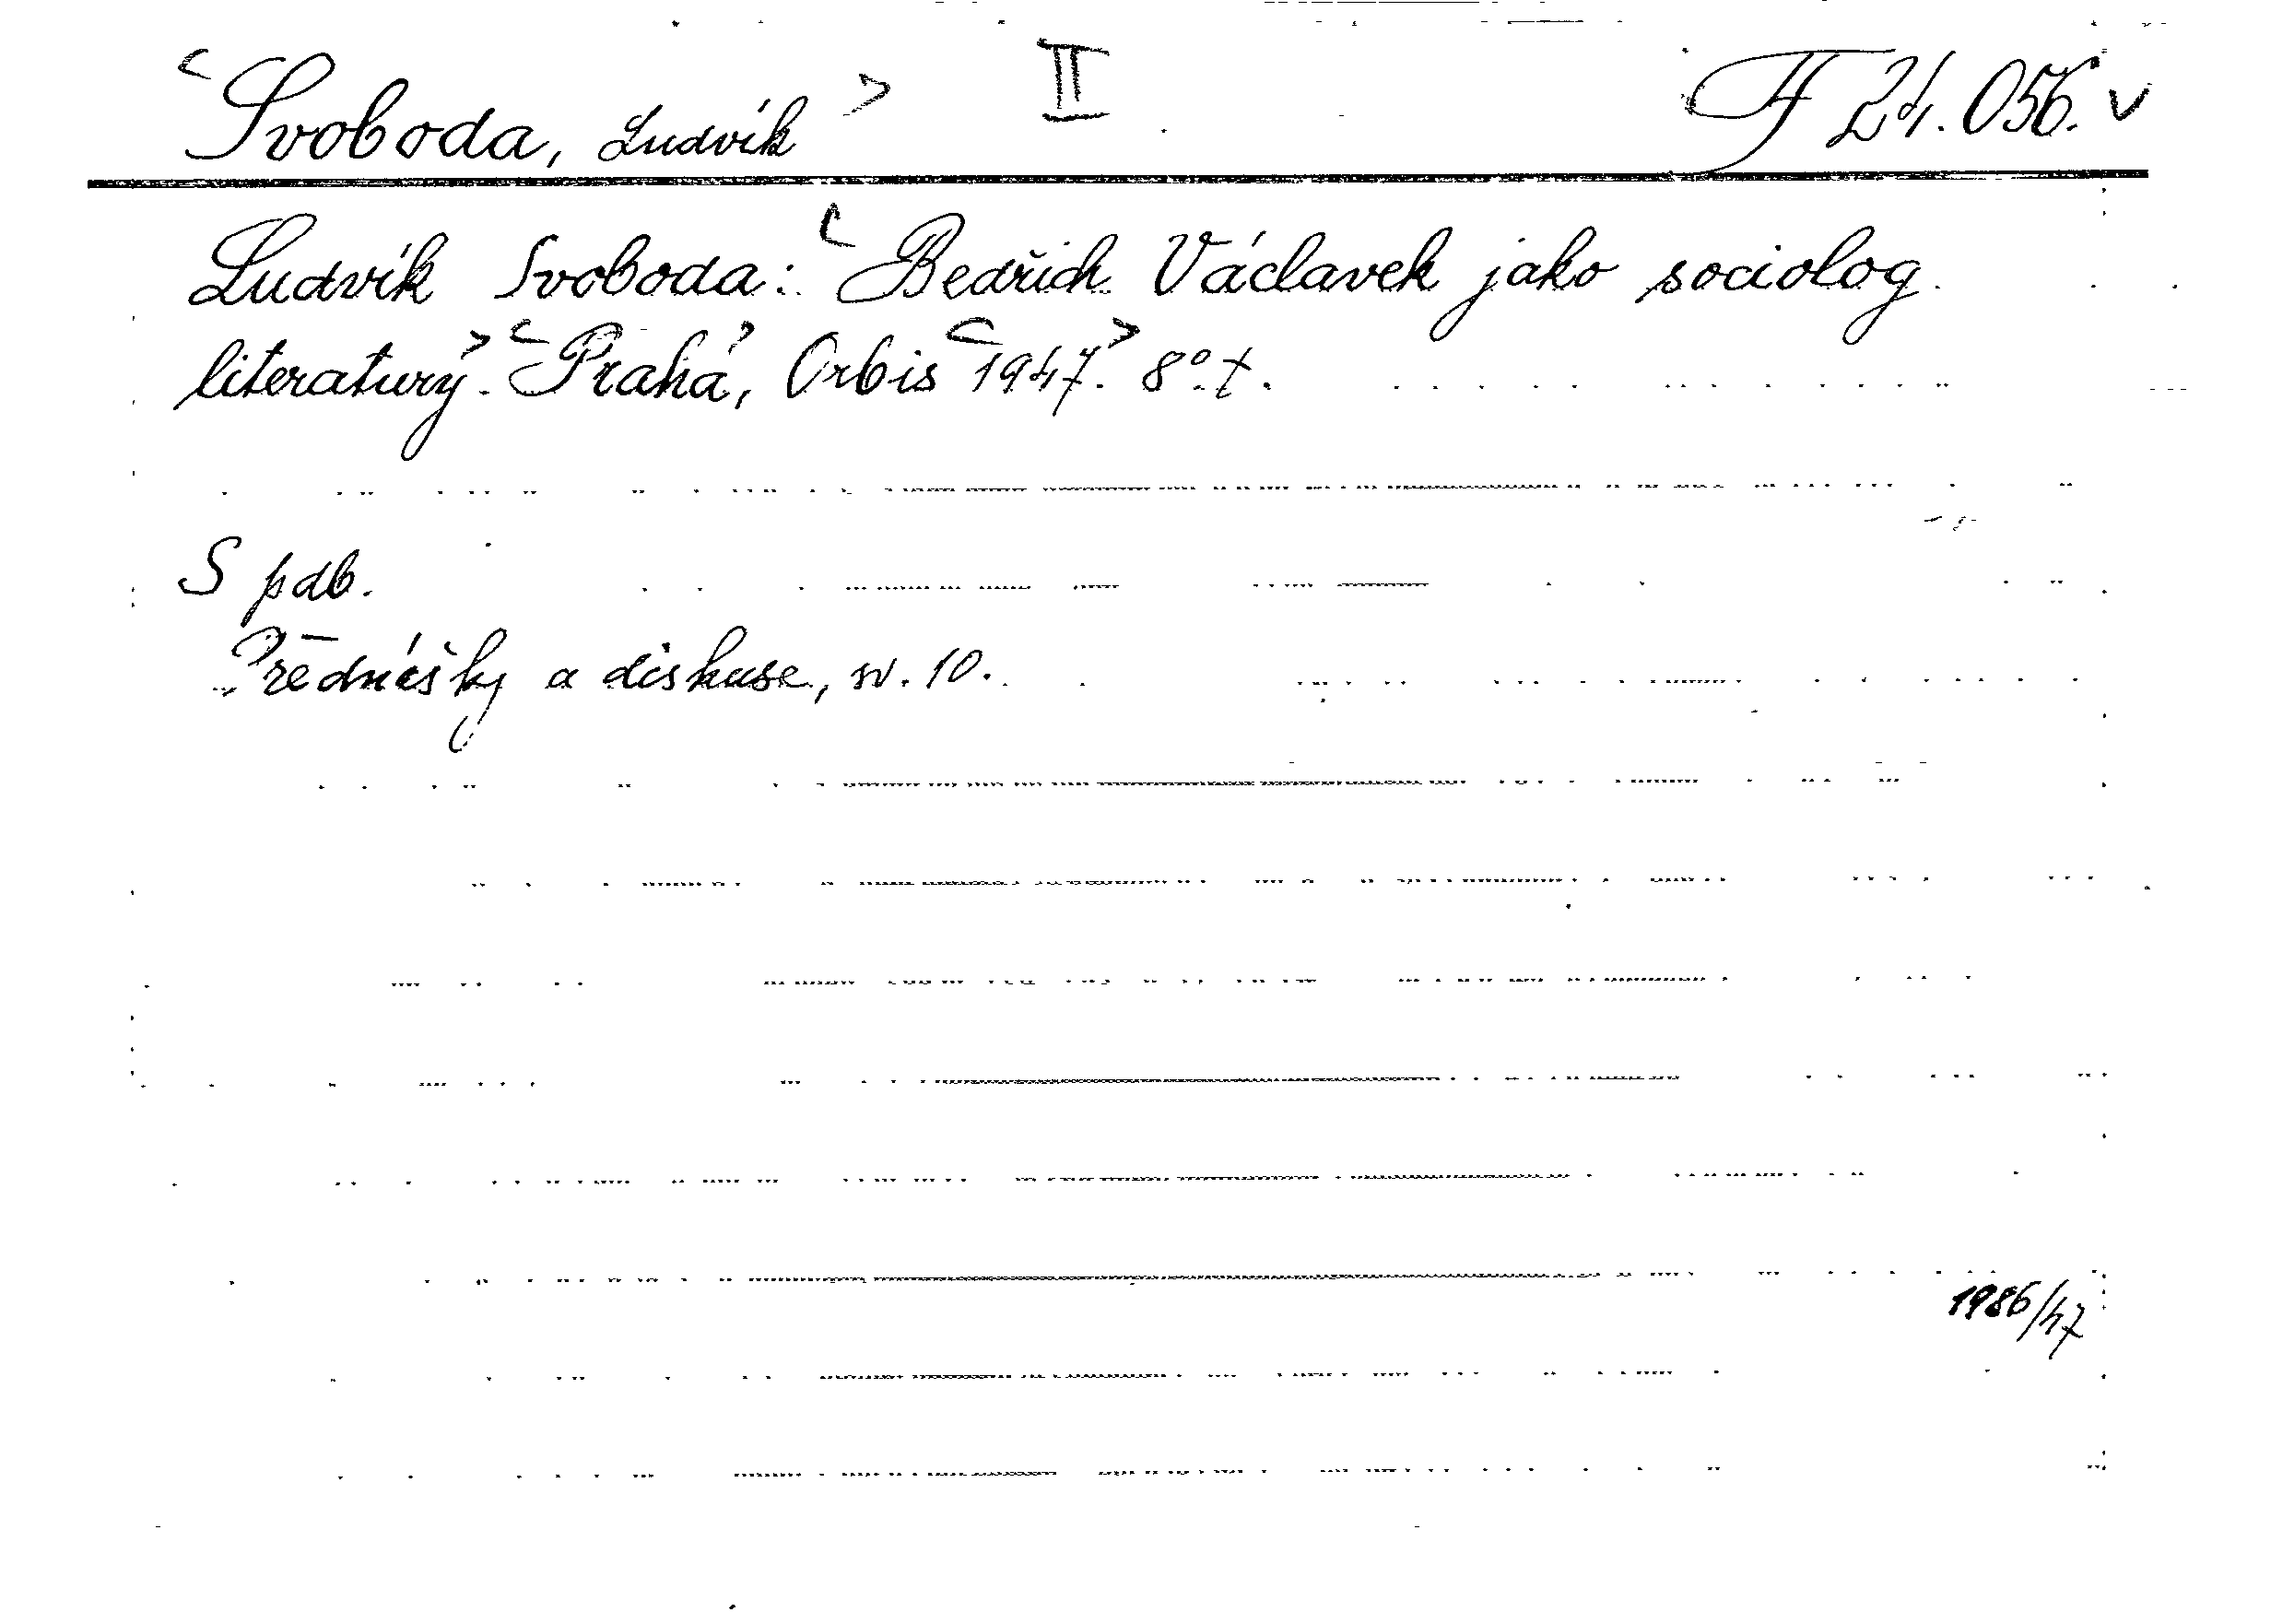 <Svoboda, Ludvík> II F 24.056. v
Ludvík Svoboda: <Bedřich Václavek jako sociolog
literatury>. <Praha>, Orbis <1947.> 8°.
S pdb.
Přednášky a diskuse, sv. 10.
1986/47